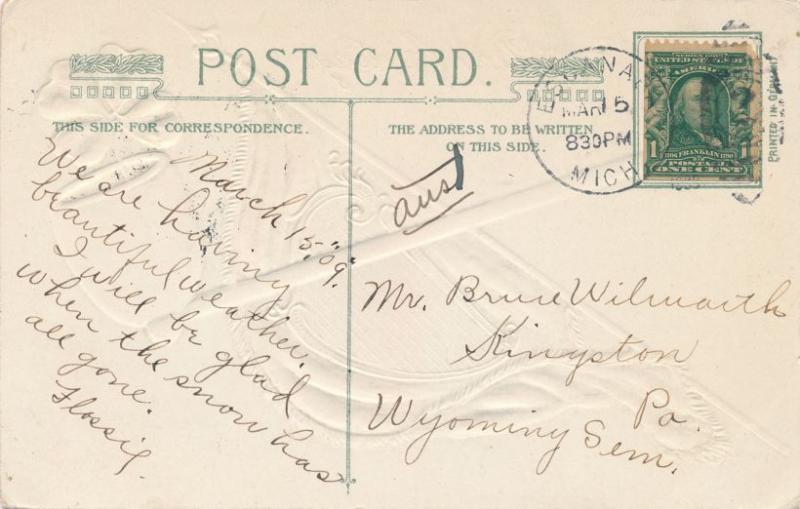 POST CARD.
THIS SIDE FOR CORRESPONDENCE.
THE ADDRESS TO BE WRITTEN
ON THIS SIDE.
March 15, "09".
We are having
beautiful weather.
I will be glad
when the snow has
all gone.
Flossie.
ans
Mr. Bruce Wilmarth
Kingston
Pa.
Wyoming Sem.
MAR 15
830PM
MICH
SERIES 1902
UNITED STATES OF
AMERICA
1 FRANKLIN 1
1706 1790
POSTAGE
ONE CENT
PRINTED IN GERMANY